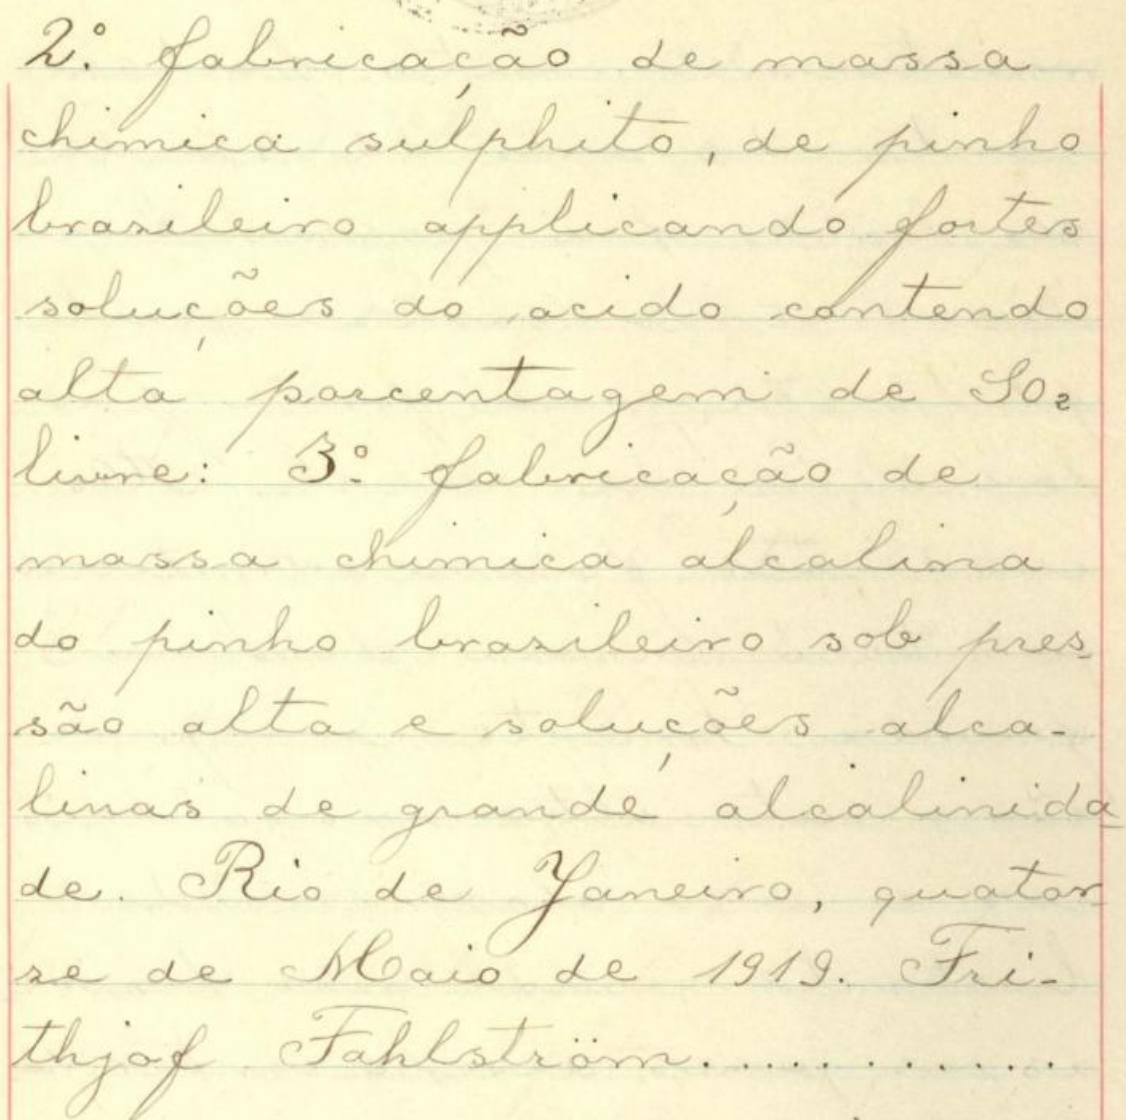 2º. fabricação de massa
chimica sulphito, de pinho
brazileiro applicando fortes
soluções do acido contendo
alta porcentagem de SO₂
livre: 3º. fabricação de
massa chimica alcalina
do pinho brazileiro sob pres-
são alta e soluções alca-
linas de grande alcalinida-
de. Rio de Janeiro, quator-
ze de Maio de 1919. Fri-
thjof Fahlström............